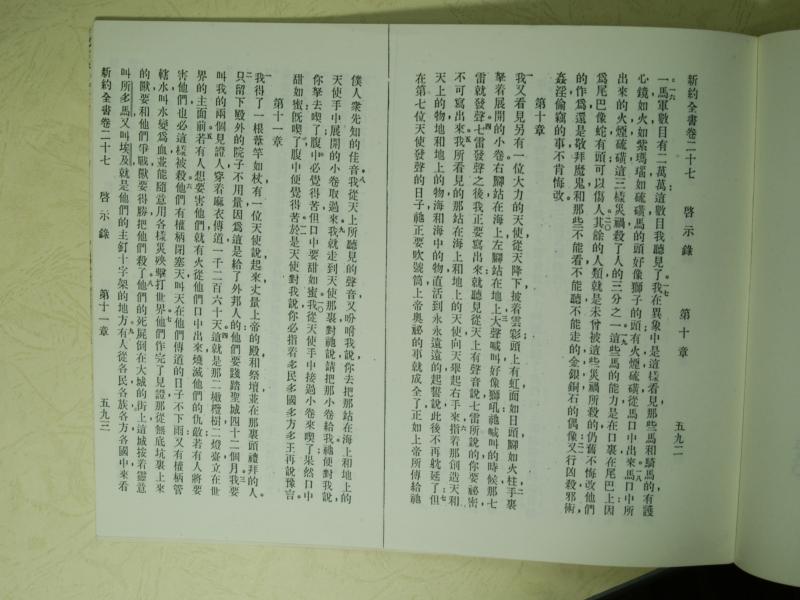 新約全書卷二十七 啓示錄 第十章 五九二
一馬軍數目有二萬萬這數目我聽見了我在異象中是這樣看見那些馬和騎馬的有護
心鏡如火如紫瑪瑙如硫磺馬的頭好像獅子的頭有火煙硫磺從馬口中出來馬口中所
出來的火煙硫磺這三樣災禍殺了人的三分之一這些馬的能力是在口裏在尾巴上因
爲尾巴像蛇有頭可以傷人其餘的人類就是未曾被這些災禍所殺的仍舊不悔改他們
的作爲還是敬拜魔鬼和那些不能看不能聽不能走的金銀銅石的偶像又行凶殺邪術
姦淫偷竊的事不肯悔改
第十章
我又看見另有一位大力的天使從天降下披着雲彩頭上有虹面如日頭腳如火柱手裏
拏着展開的小卷右腳站在海上左腳站在地上大聲喊叫好像獅吼祂喊叫的時候那七
雷就發聲七雷發聲之後我正要寫出來就聽見從天上有聲音說七雷所說的你要祕密
不可寫出來我所看見的那站在海上和地上的天使向天舉起右手來指着那創造天和
天上的物地和地上的物海和海中的物直活到永永遠遠的起誓說此後不再躭延了但
在第七位天使發聲的日子祂正要吹號筒上帝奧祕的事就成全了正如上帝所傳給祂
僕人衆先知的佳音我從天上所聽見的聲音又吩咐我說你去把那站在海上和地上的
天使手中展開的小卷取過來我就走到天使那裏對祂說請把那小卷給我祂便對我說
你拏去喫了腹中必覺得苦但口中要甜如蜜我從天使手中接過小卷來喫了果然口中
甜如蜜旣喫了腹中便覺得苦於是天使對我說你必指着多民多國多方多王再說豫言
第十一章
我得了一根葦竿如杖有一位天使說起來丈量上帝的殿和祭壇並在那裏頭禮拜的人
只留下殿外的院子不用量因爲這是給了外邦人的他們要踐踏聖城四十二個月我要
叫我的兩個見證人穿着麻衣傳道一千二百六十天這就是那二橄欖樹二燈臺立在世
界的主面前若有人想要害他們就有火從他們口中出來燒滅他們的仇敵若有人將要
害他們也必這樣被殺他們有權柄閉塞天叫天在他們傳道的日子不下雨又有權柄管
轄水叫水變爲血並能隨意用各樣災殃擊打世界他們作完了見證那從無底坑裏上來
的獸要和他們爭戰獸要得勝把他們殺了他們的死屍倒在大城的街上這城按着靈意
叫所多馬又叫埃及就是他們的主釘十字架的地方有人從各民各族各方各國中來看
新約全書卷二十七 啓示錄 第十一章 五九三